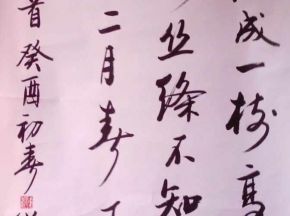 成一树高
丝绦不知
二月春
首癸酉初春